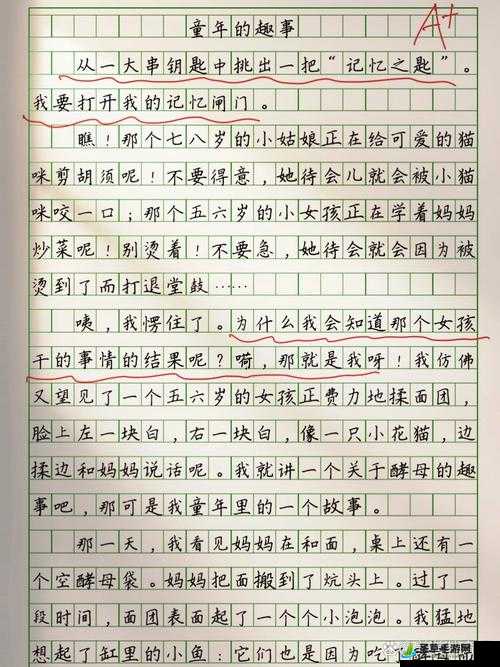 童年的趣事
A+
从一大串钥匙中挑出一把“记忆之匙”。
我要打开我的记忆闸门。
瞧！那个七八岁的小姑娘正在给可爱的猫
咪剪胡须呢！不要得意，她待会儿就会被小猫
咪咬一口；那个五六岁的小女孩正在学着妈妈
炒菜呢！别烫着！不要急，她待会就会因为被
烫到了而打退堂鼓……
咦，我愣住了。为什么我会知道那个女孩
干的事情的结果呢？嗬，那就是我呀！我仿佛
又望见了一个五六岁的女孩正费力地揉面团，
脸上左一块白，右一块白，像一只小花猫，边
揉边和妈妈说话呢。我就讲一个关于酵母的趣
事吧，那可是我童年里的一个故事。
那一天，我看见妈妈在和面，桌上还有一
个空酵母袋。妈妈把面搬到了炕头上。过了一
段时间，面团表面起了一个个小泡泡。我猛地
想起了缸里的小鱼：它们也是因为吃